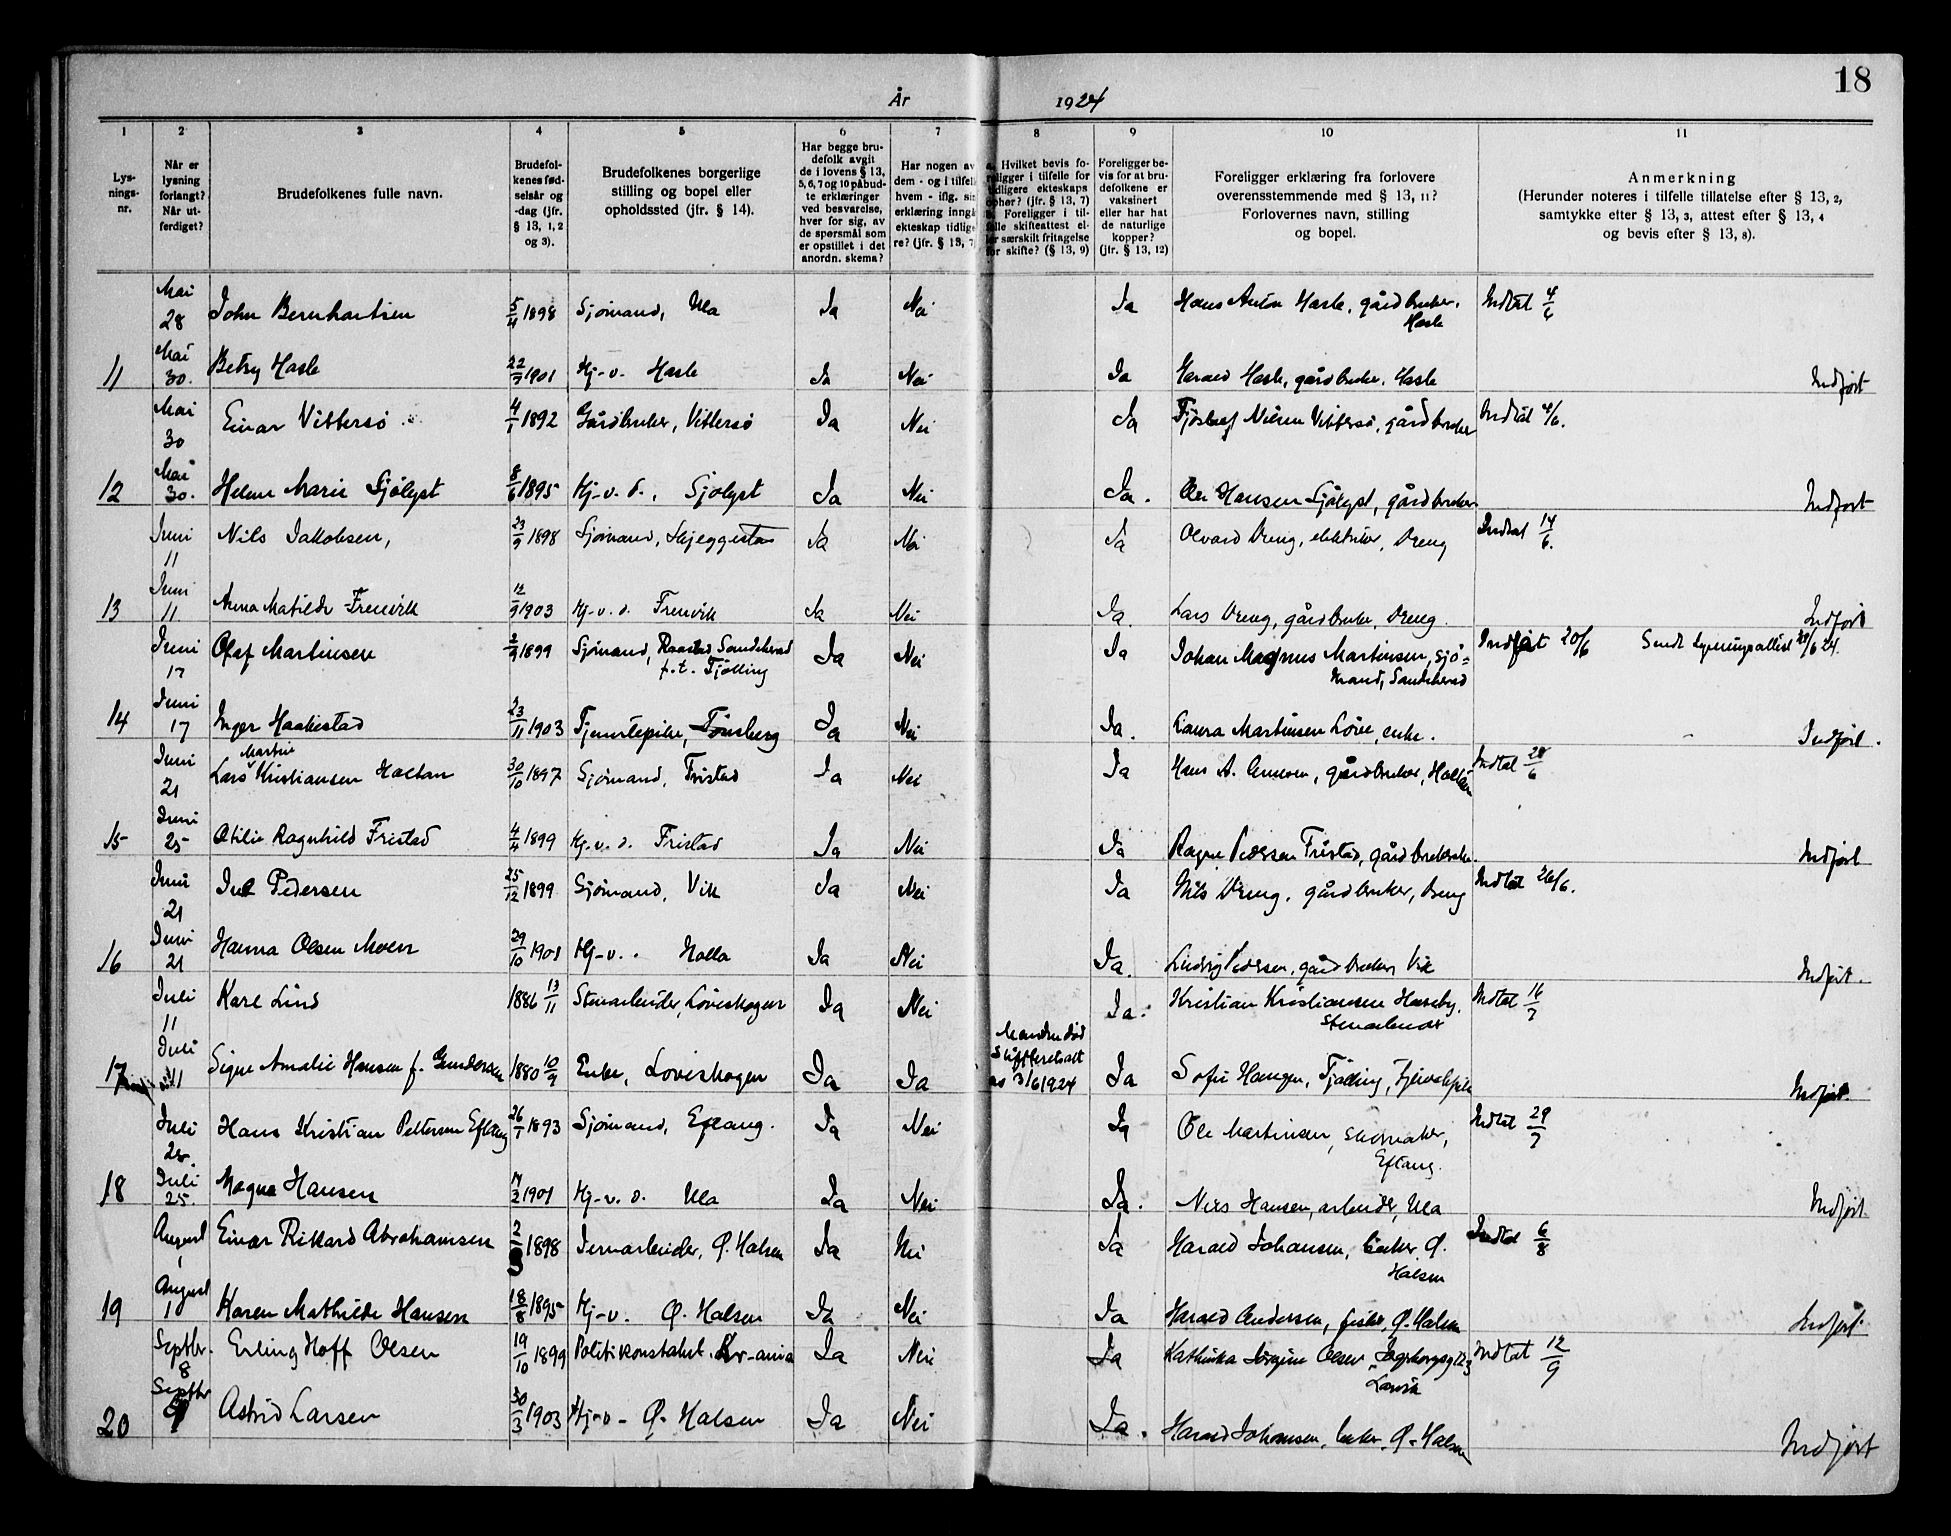 18
År 1924
1 2 3 4 5 6 7 8 9 10 11
Lys-
nings-
nr.
Når er
lysning
forlangt?
Når ut-
ferdiget?
Brudefolkenes fulle navn.
Brudefol-
kenes fød-
selsår og
-dag (jfr.
§ 13, 1, 2
og 3).
Brudefolkenes borgerlige
stilling og bopel eller
opholdssted (jfr. § 14).
Har begge bru-
defolk avgit
de i lovens § 13,
5, 6, 7 og 10 påbud-
te erklæringer
ved besvarelse,
hver for sig, av
de spørsmål som
er opstillet i det
anordn. skema?
Har nogen av
dem - og i tilfelle
hvem - iflg. sin
erklæring inngå
ekteskap tidlige
re? (jfr. § 13, 7)
a. Hvilket bevis fo-
religger i tilfelle for
tidligere ekteskaps
ophør? (jfr. § 13, 7)
b. Foreligger i til-
felle skifteattest el-
ler særskilt fritagelse
for skifte? (§ 13, 9)
Foreligger be-
vis for at bru-
defolkene er
vaksinert
eller har hat
de naturlige
kopper?
(jfr. § 13, 12)
Foreligger erklæring fra forlovere
overensstemmende med § 13, 11?
Forlovernes navn, stilling
og bopel.
Anmerkning
(Herunder noteres i tilfelle tillatelse efter § 13, 2,
samtykke efter § 13, 3, attest efter § 13, 4
og bevis efter § 13, 8).
Mai 28 John Bernhartsen 5/4 1898 Sjømand, Ula Ja Nei Ja Hans Anton Hasle, gårdbruker, Hasle Indtat 4/6
11 Mai 30. Betsy Hasle 22/7 1901 Hj-v. Hasle Ja Nei Ja Harald Hasle, gårdbruker, Hasle Indført
Mai 30 Einar Vittersø 4/1 1892 Gårdbruker, Vittersø Ja Nei Ja Nilsen Vittersø, gårdbruker Indtat 4/6.
12 Mai 30. Helene Marie Sjølyst 8/6 1895 Hj-v. d., Sjølyst Ja Nei Ja. Ole Hansen Sjølyst, gårdbruker Indført
Juni 11 Nils Jakobsen, 23/9 1898 Sjømand, Skjeggestad Ja Nei Ja Olvard Vreng, elektriker, Vreng Indtat 14/6.
13 Juni 11 Anna Matilde Frenvik 12/9 1903 Hj-v. d. Frenvik Ja Nei Ja. Lars Vreng, gårdbruker, Vreng. Indført
Juni 17 Olaf Martinsen 2/9 1899 Sjømand, Raastad Sandeherad p.t. Tjølling Ja Nei Ja Johan Magnus Martinsen, sjø=mand, Sandeherad Indført 20/6 Sendt lysningsattest 24.
14 Juni 17 Inger Haakestad 23/11 1903 Tjenestepike, Tønsberg Ja Nei Ja. Laura Martinsen Løve, enke. Indført.
Juni 21 Lars Martin Kristiansen Holtan 30/10 1897 Sjømand, Fristad Ja Nei Ja Hans A. gårdbruker, Holtan Indtat 28/6
15 Juni 25 Otilie Ragnhild Fristad 4/4 1899 Hj.v.d. Fristad Ja Nei Ja Pedersen Fristad, gårdbruker. Indført
Juni 21 Juel Pedersen 25/12 1899 Sjømand, Vik Ja Nei Ja Nils Vreng, gårdbruker, Vreng Indtat 26/6.
16 Juni 21 Hanna Olsen Moen 29/10 1901 Hj-v. Holla Ja Nei Ja. Ludvig Pedersen, gårdbruker Vik Indført.
Juli 11 Karl Lind 1886 13/11 Stenarbeider, Løveskogen Ja Nei Ja. Kristian Kristiansen Haneby, Stenarbeider Indtat 16/7
17 Juli 11 Signe Amalie Hansen f. Gundersen 1880 10/9 Enke, Løveskogen Ja Ja Manden død Skifteretsatt as 3/6 1924 Ja Sofie Hansen, Tjølling, Indført.
Juli 25. Hans Kristian Pettersen Eftang 26/1 1893 Sjømand, Eftang. Ja Nei Ja Ole Martinsen, skomaker, Eftang. Indtat 29/7
18 Juli 25. Magna Hansen 1901 Hj-v. d. Ula Ja Nei Ja. Nils Hansen, arbeider, Ula Indført
August 1 Einar Rikard Abrahamsen 2/3 1898 Jernarbeider, Ø. Halsen Ja Nei Ja Harald Johansen, Ø. Halsen Indtat 6/8
19 August 1 Karen Mathilde Hansen 18/8 1895 Hj-v. Ø. Halsen Ja Nei Ja Harald Andersen, fisker, Ø. Halsen Indført
Septbr. 8 Erling Hoff Olsen 19/10 1899 Politikonstabel. Kr-ania Ja Nei Ja Kathinka Jørgine Olsen, Larvik Indtat 12/9
20 Septbr 9 Astrid Larsen 30/3 1903 Hj-v- Ø. Halsen Ja Nei Ja. Harald Johansen, Ø. Halsen Indført